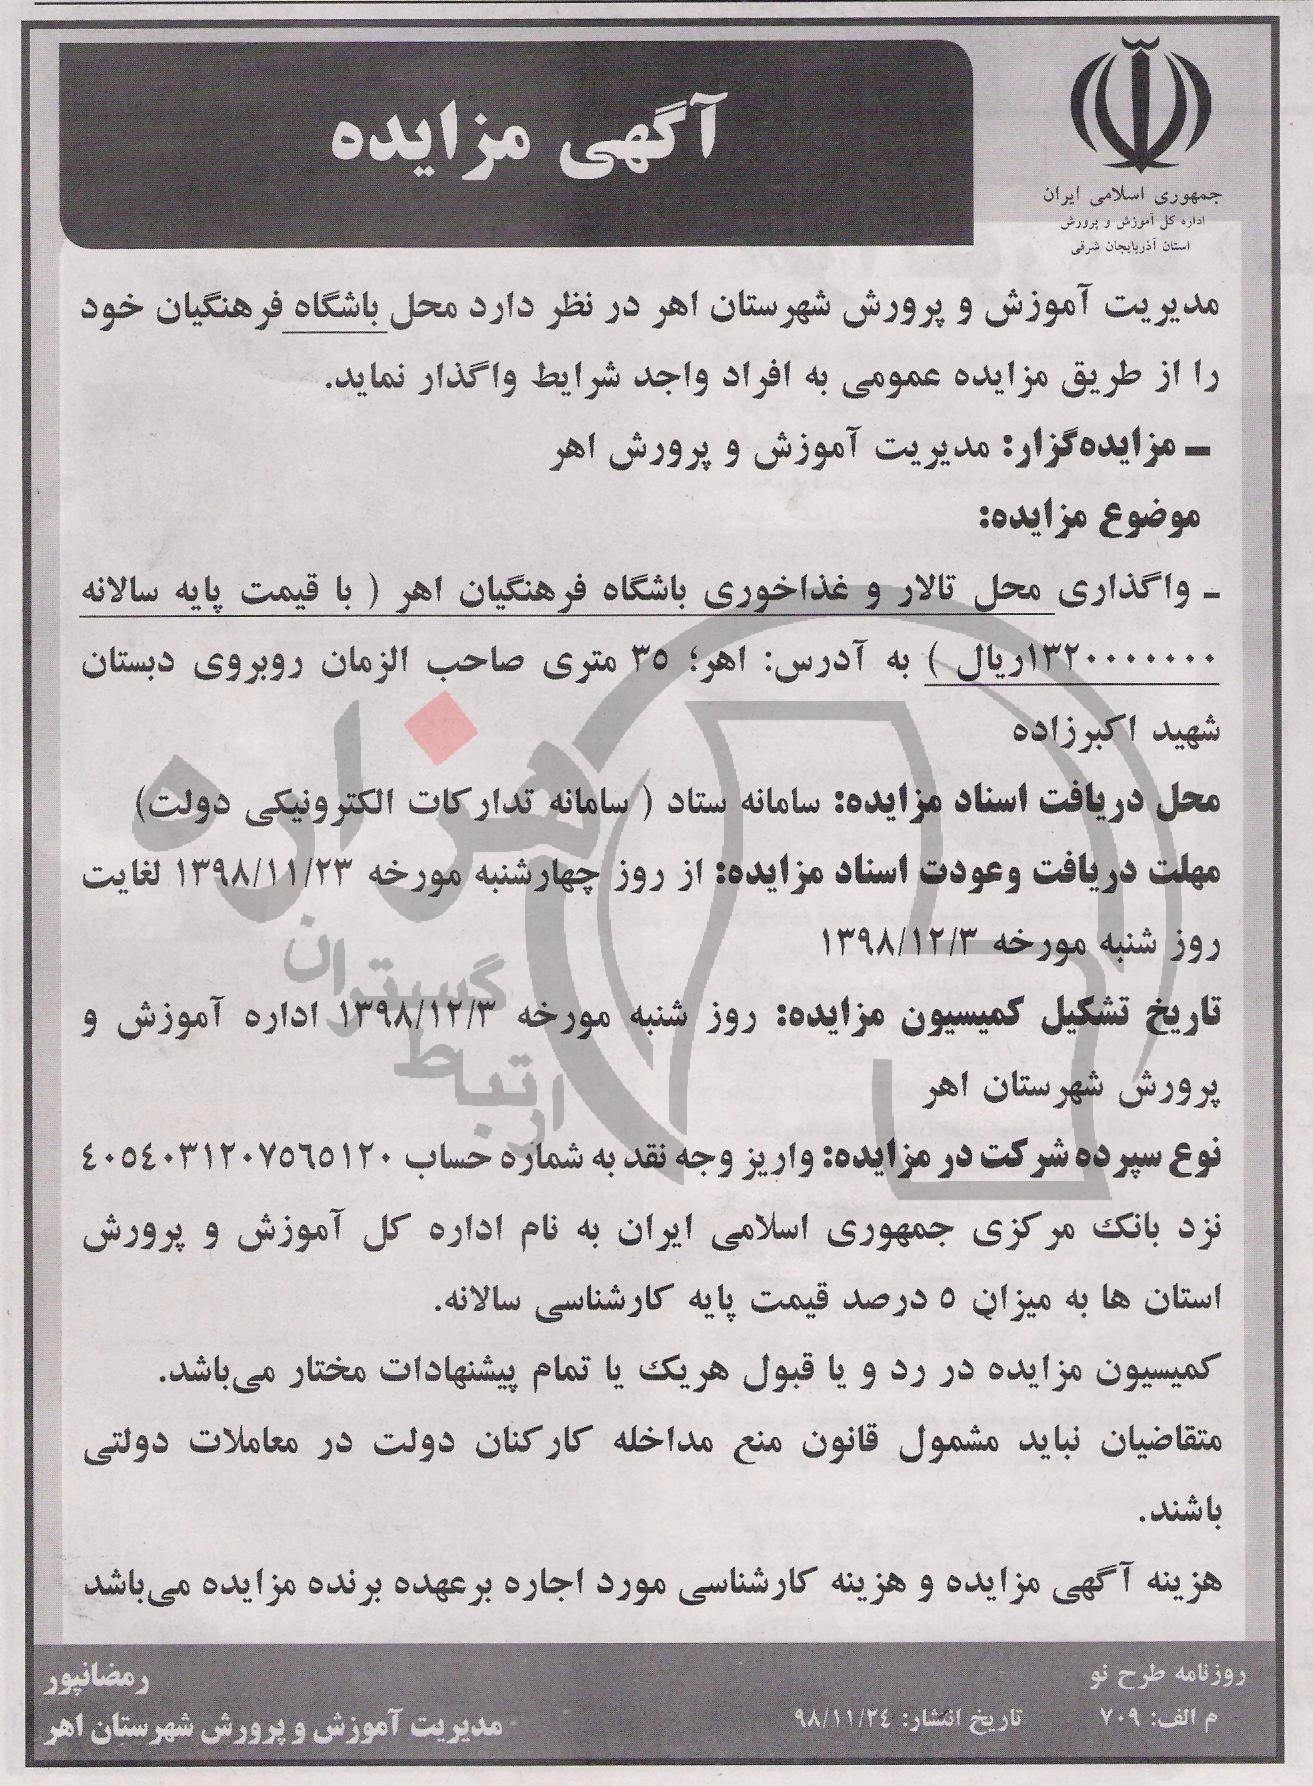 جمهوری اسلامی ایران
اداره کل آموزش و پرورش
استان آذربایجان شرقی
آگهی مزایده
مدیریت آموزش و پرورش شهرستان اهر در نظر دارد محل باشگاه فرهنگیان خود
را از طریق مزایده عمومی به افراد واجد شرایط واگذار نماید.
ـ مزایده‌گزار: مدیریت آموزش و پرورش اهر
موضوع مزایده:
ـ واگذاری محل تالار و غذاخوری باشگاه فرهنگیان اهر ( با قیمت پایه سالانه
۱۳۲۰۰۰۰۰۰۰ریال ) به آدرس: اهر؛ ۳۵ متری صاحب الزمان روبروی دبستان
شهید اکبرزاده
محل دریافت اسناد مزایده: سامانه ستاد ( سامانه تدارکات الکترونیکی دولت)
مهلت دریافت وعودت اسناد مزایده: از روز چهارشنبه مورخه ۱۳۹۸/۱۱/۲۳ لغایت
روز شنبه مورخه ۱۳۹۸/۱۲/۳
تاریخ تشکیل کمیسیون مزایده: روز شنبه مورخه ۱۳۹۸/۱۲/۳ اداره آموزش و
پرورش شهرستان اهر
نوع سپرده شرکت در مزایده: واریز وجه نقد به شماره حساب ۴۰۵۴۰۳۱۲۰۷۵۶۵۱۲۰
نزد بانک مرکزی جمهوری اسلامی ایران به نام اداره کل آموزش و پرورش
استان ها به میزان ۵ درصد قیمت پایه کارشناسی سالانه.
کمیسیون مزایده در رد و یا قبول هریک یا تمام پیشنهادات مختار می‌باشد.
متقاضیان نباید مشمول قانون منع مداخله کارکنان دولت در معاملات دولتی
باشند.
هزینه آگهی مزایده و هزینه کارشناسی مورد اجاره برعهده برنده مزایده می‌باشد
روزنامه طرح نو
م الف: ۷۰۹
تاریخ انتشار: ۹۸/۱۱/۲۴
رمضانپور
مدیریت آموزش و پرورش شهرستان اهر
هزاره
گستران
ارتباط